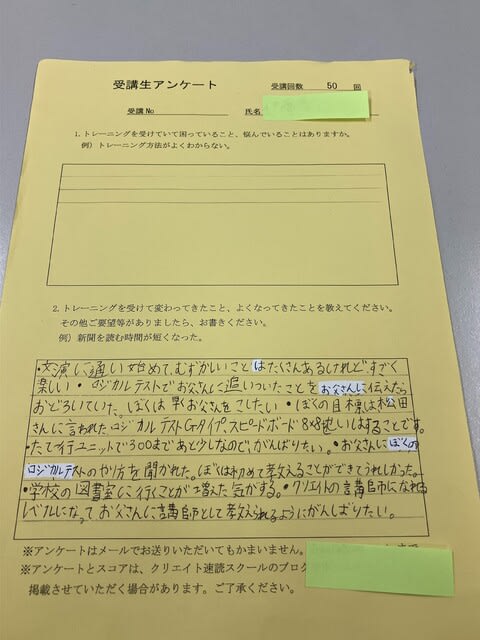 受講生アンケート
受講回数 50 回
受講No
氏名
1. トレーニングを受けていて困っていること、悩んでいることはありますか。
例）トレーニング方法がよくわからない。
2. トレーニングを受けて変わってきたこと、よくなってきたことを教えてください。
その他ご要望等がありましたら、お書きください。
例）新聞を読む時間が短くなった。
・文演に通い始めて、むずかしいことはたくさんあるけれど、すごく
楽しい・ロジカルテストでお父さんに追いついたことをお父さんに伝えたら
おどろいていた。ぼくは早くお父さんをこしたい・ぼくの目標は松田
さんに言われたロジカルテストGタイプ、スピードボード8×8枕しいはすることです。
・たて一行ユニットで300まであと少しなので、がんばりたい。・お父さんにぼくの
ロジカルテストのやり方を聞かれた。ぼくははじめて教えることができてうれしかった。
・学校の図書室に行くことが増えた気がする。・クリエイトの講師になれる
レベルになってお父さんに講師として教えられるようにがんばりたい。
※アンケートはメールでお送りいただいてもかまいません。
※アンケートとスコアは、クリエイト速読スクールのブログ
掲載させていただく場合があります。ご了承ください。